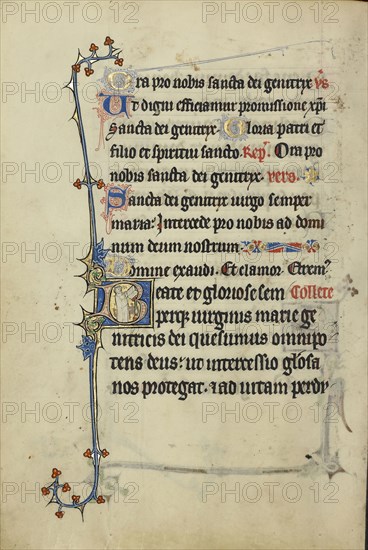 Ora pro nobis sancta dei genitrix vs
Ut digni efficiamur promissione xpi
Sancta dei genitrix. Gloria patri et
filio et spiritui sancto. Rep. Ora pro
nobis sancta dei genitrix. vers.
Sancta dei genitrix virgo semper
maria: Intercede pro nobis ad domi
num deum nostrum.
Domine exaudi. Et clamor. Orem
Beate et gloriose sem Collecte
perque virginis marie ge
nitricis dei quesumus omnipo
tens deus: ut intercessio glosa
nos protegat. et ad vitam perdu
PHOTO 12